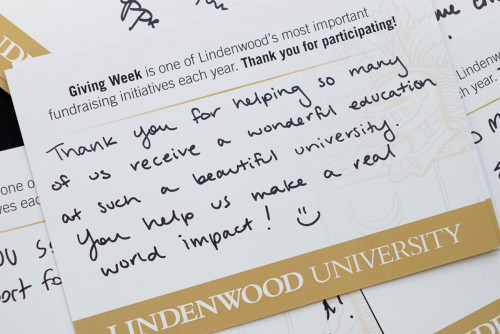 Giving Week is one of Lindenwood's most important
fundraising initiatives each year. Thank you for participating!
Thank you for helping so many
of us receive a wonderful education
at such a beautiful university.
You help us make a real
world impact! :)
LINDENWOOD UNIVERSITY
one o
ves eac
ort fo
Lindenwo